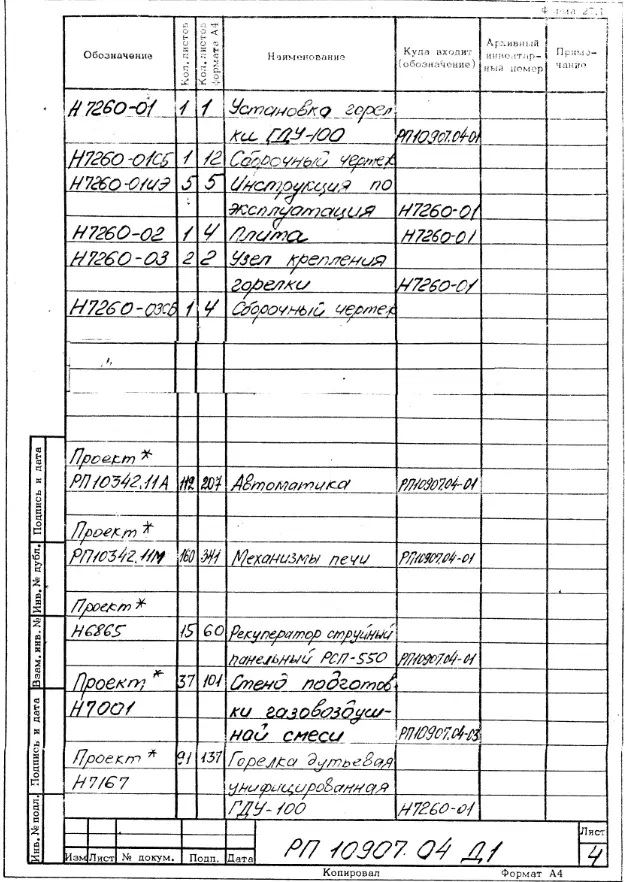 Форма 2.1
Обозначение Кол. листов Кол. листов формата А4 Наименование Куда входит (обозначение) Архивный инвентарный номер Примечание
Н7260-01 1 1 Установка горел-
ки ГДУ-100 РП10907.04-01
Н7260-01СБ 1 12 Сборочный чертеж
Н7260-01ИЭ 5 5 Инструкция по
эксплуатация Н7260-01
Н7260-02 1 4 Плита Н7260-01
Н7260-03 2 2 Узел крепления
горелки Н7260-01
Н7260-03СБ 1 4 Сборочный чертеж
Проект*
РП10342.11А 112 207 Автоматика РП10907.04-01
Проект*
РП10342.11М 160 341 Механизмы печи РП10907.04-01
Проект*
Н6865 15 60 Рекуператор струйный
панельный РСП-550 РП10907.04-01
Проект* 37 101 Стенд подготов-
Н7001 ки газовоздуш-
ной смеси РП10907.04-03
Проект* 91 137 Горелка дутьевая
Н7167 унифицированная
ГДУ-100 Н7260-01
Инв. № подл. Подпись и дата Взам. инв. № Инв. № дубл. Подпись и дата
Изм Лист № докум. Подп. Дата
РП 10907.04 Д1
Лист
4
Копировал Формат А4